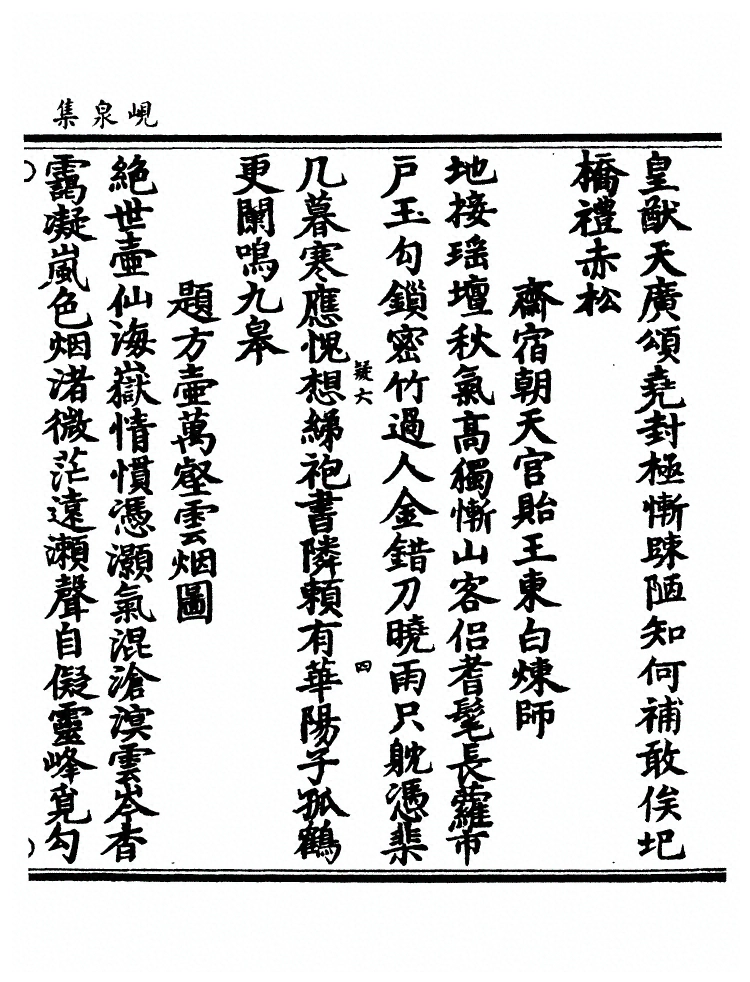 峴泉集
皇猷天廣頌堯封極慚踈陋知何補敢俟圯
橋禮赤松
齋宿朝天官貽王東白煉師
地接瑶壇秋氣高獨慚山客侶耆髦長蘿市
戸玉勾鎖密竹過人金錯刀曉雨只躭憑棐
几暮寒應愧想綈袍書隣頼有華陽子孤鶴
更闌鳴九皋
題方壷萬壑雲烟圖
絶世壷仙海嶽情慣憑灝氣混滄溟雲岑杳
靄凝嵐色烟渚微茫遠瀬聲自儗靈峰覓勾
疑六
四